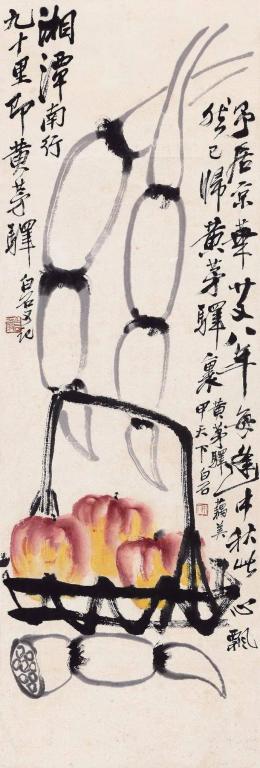 予居京華廿又八年每逢中秋此心飄
然已歸黃茅驛裏
黃茅驛藕美
甲天下白石
湘潭南行
九十里即黃茅驛
白石又記